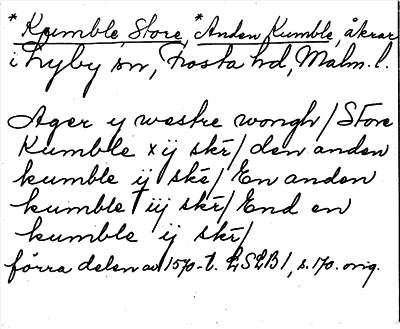 *Kumble, Store, *Anden Kumble, åkrar
i Lyby sn, Frosta hd, Malm. l.
Ager y westre wongh / Store
Kumble x ij skr̄ / den anden
kumble ij skr̄ / En anden
kumble iij skr̄ / End en
kumble ij skr̄ /
förra delen av 1570-t. LSLB 1, s. 170. orig.